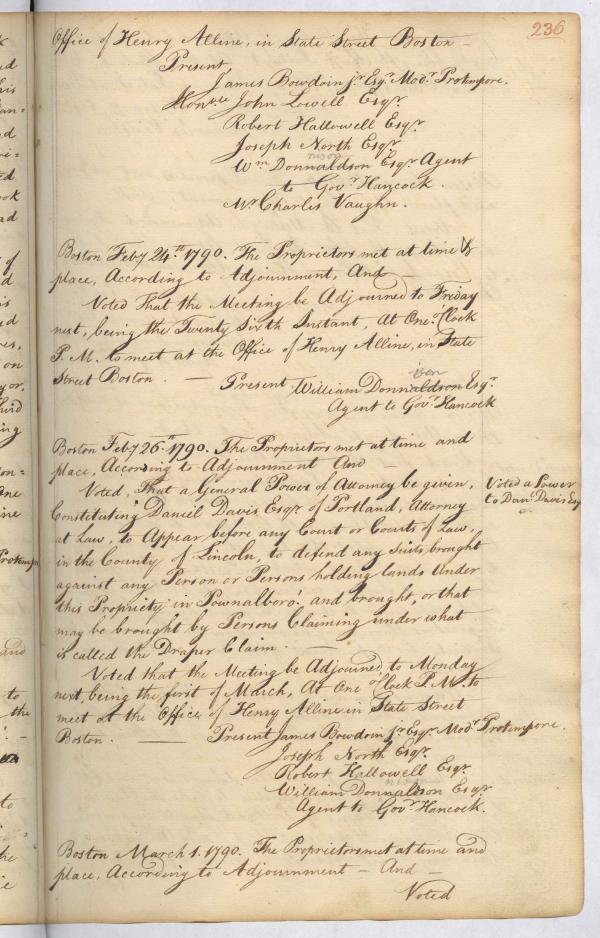 236
Office of Henry Alline, in State Street Boston —
Present,
James Bowdoin jr Esqr. Modr Protempore.
Honble John Lowell Esqr.
Robert Hallowell Esqr.
Joseph North Esqr.
nison
Wm Donnaldson Esqr Agent
to Govr Hancock.
Mr Charles Vaughn.
Boston Feby 24th 1790. The Proprietors met at time &
place, According to Adjournment, And —
Voted That the Meeting be Adjourned to Friday
next, being the Twenty Sixth Instant, At One o'Clock
P. M. to meet at the Office of Henry Alline, in State
Street Boston. — Present William Donnaldson Esqr.
Agent to Govr Hancock
Boston Feby 26th 1790. The Proprietors met at time and
place, According to Adjournment And —
Voted, That a General Power of Attorney be given,
Constituting Daniel Davis Esqr of Portland, Attorney
at Law, to Appear before any Court or Courts of Law,
in the County of Lincoln, to defend any Suits brought
against any Person or Persons holding lands Under
this Propriety in Pownalboro' and brought, or that
may be brought by Persons Claiming under what
is called the Draper Claim. —
Voted a Power
to Danl Davis Esq
Voted that the Meeting be Adjourned to Monday
next, being the first of March, At One o'Clock P.M. to
meet at the Office of Henry Alline in State Street
Boston. — Present James Bowdoin jr Esqr Modr Protempore.
Joseph North Esqr.
Robert Hallowell Esqr
nison
William Donnaldson Esqr
Agent to Govr Hancock.
Boston March 1. 1790. The Proprietors met at time and
place, According to Adjournment — And —
Voted